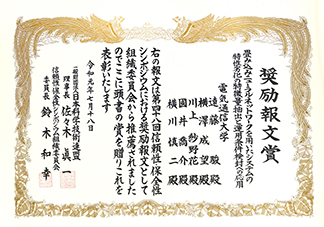 奨励報文賞
畳み込みニューラルネットワークを用いたシステムの
特性変化の特徴量抽出と運用条件検討への応用
電気通信大学
遠藤 駿殿
横澤 成望殿
川上 紗野花殿
國井 喬介殿
横川 慎二殿
右の報文は第四十八回信頼性・保全性
シンポジウムにおける奨励報文として
組織委員会から推薦されました
のでここに頭書の賞を贈りこれを
表彰いたします
令和元年七月十八日
一般財団法人日本科学技術連盟
理事長 佐々木 眞一
信頼性・保全性シンポジウム組織委員会
委員長 鈴木 和幸